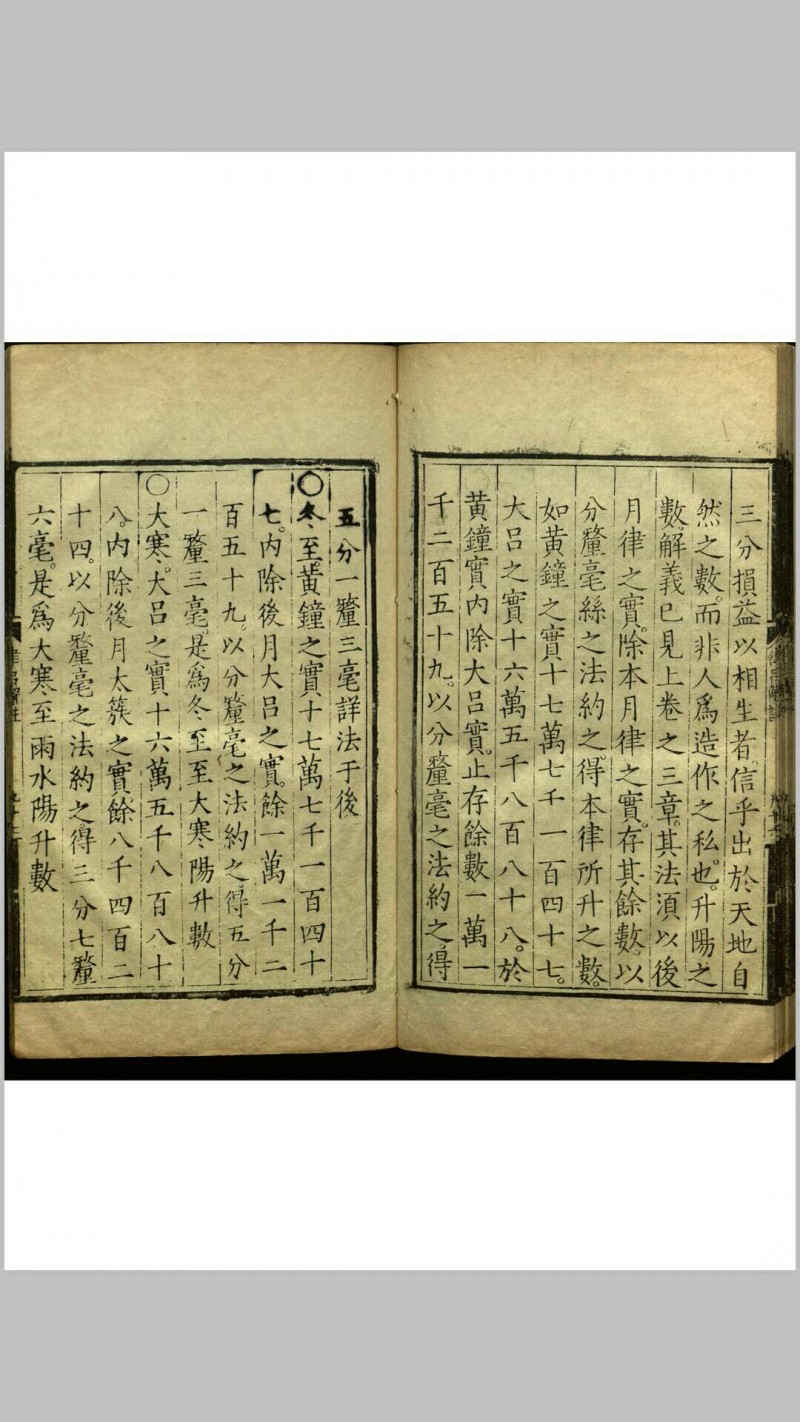 三分損益以相生者。信乎出於天地自
然之數。而非人爲造作之私也。升陽之
數。解義已見上卷之三章。其法湏以後
月律之實。除本月律之實。存其餘數。以
分釐毫絲之法約之。得本律所升之數。
如黄鐘之實十七萬七千一百四十七。
大吕之實十六萬五千八百八十八。於
黄鐘實内除大吕實。止存餘數一萬一
千二百五十九。以分釐毫之法約之得
五分一釐三毫詳法于後
〇冬至。黄鐘之實十七萬七千一百四十
七。内除後月大吕之實。餘一萬一千二
百五十九。以分釐毫之法約之得五分
一釐三毫。是爲冬至至大寒陽升數
〇大寒。大吕之實十六萬五千八百八十
八。内除後月太簇之實餘八千四百二
十四。以分釐毫之法約之得三分七釐
六毫。是爲大寒至雨水陽升數